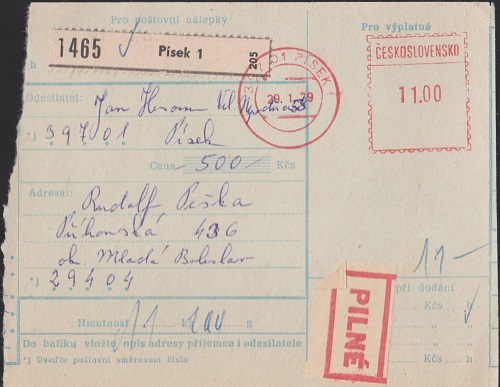 Pro poštovní nálepky
Pro výplatné
1465 Písek 1 205
h
397 01 PÍSEK 1
29.1.79
ČESKOSLOVENSKO
11.00
Odesílatel: Jan
*) 39701 Písek
Cena 500 Kčs
Adresát:
Rudolf Peška
436
ok. Mladá Boleslav
*) 29404
11-
při dodání
Kčs h
Kčs h
Kčs
PILNÉ
Hmotnost 11 kg 100 g
Do balíku vložte opis adresy příjemce i odesílatele
*) Uveďte poštovní směrovací číslo